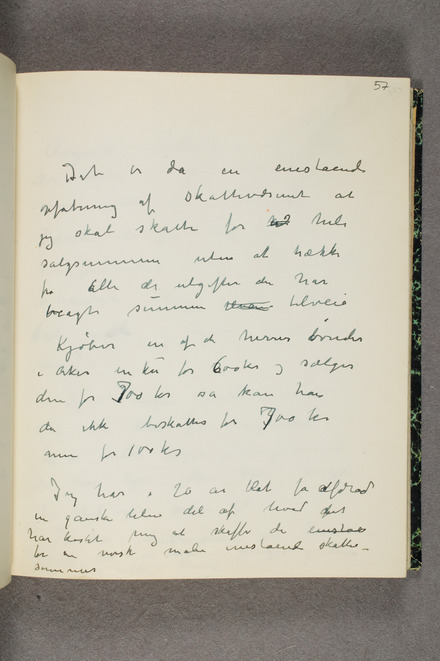 57
Det er da en enestaaende
opfatning af skattevæsenet at
jeg skal skatte for hele
salgsummen uten at trække
fra alle de utgifter der har
bragt summen tilveie
Kjøber en af de herrer bønder
i Aker en ku for 600 kr og sælger
den for 700 kr sa kan han
da ikke beskattes for 700 kr
men for 100 kr
Jeg har i 20 ar blot fa
en ganske liten del af hvad det
har kostet mig at skaffe de
for en norsk maler enestaaende skatte-
summer